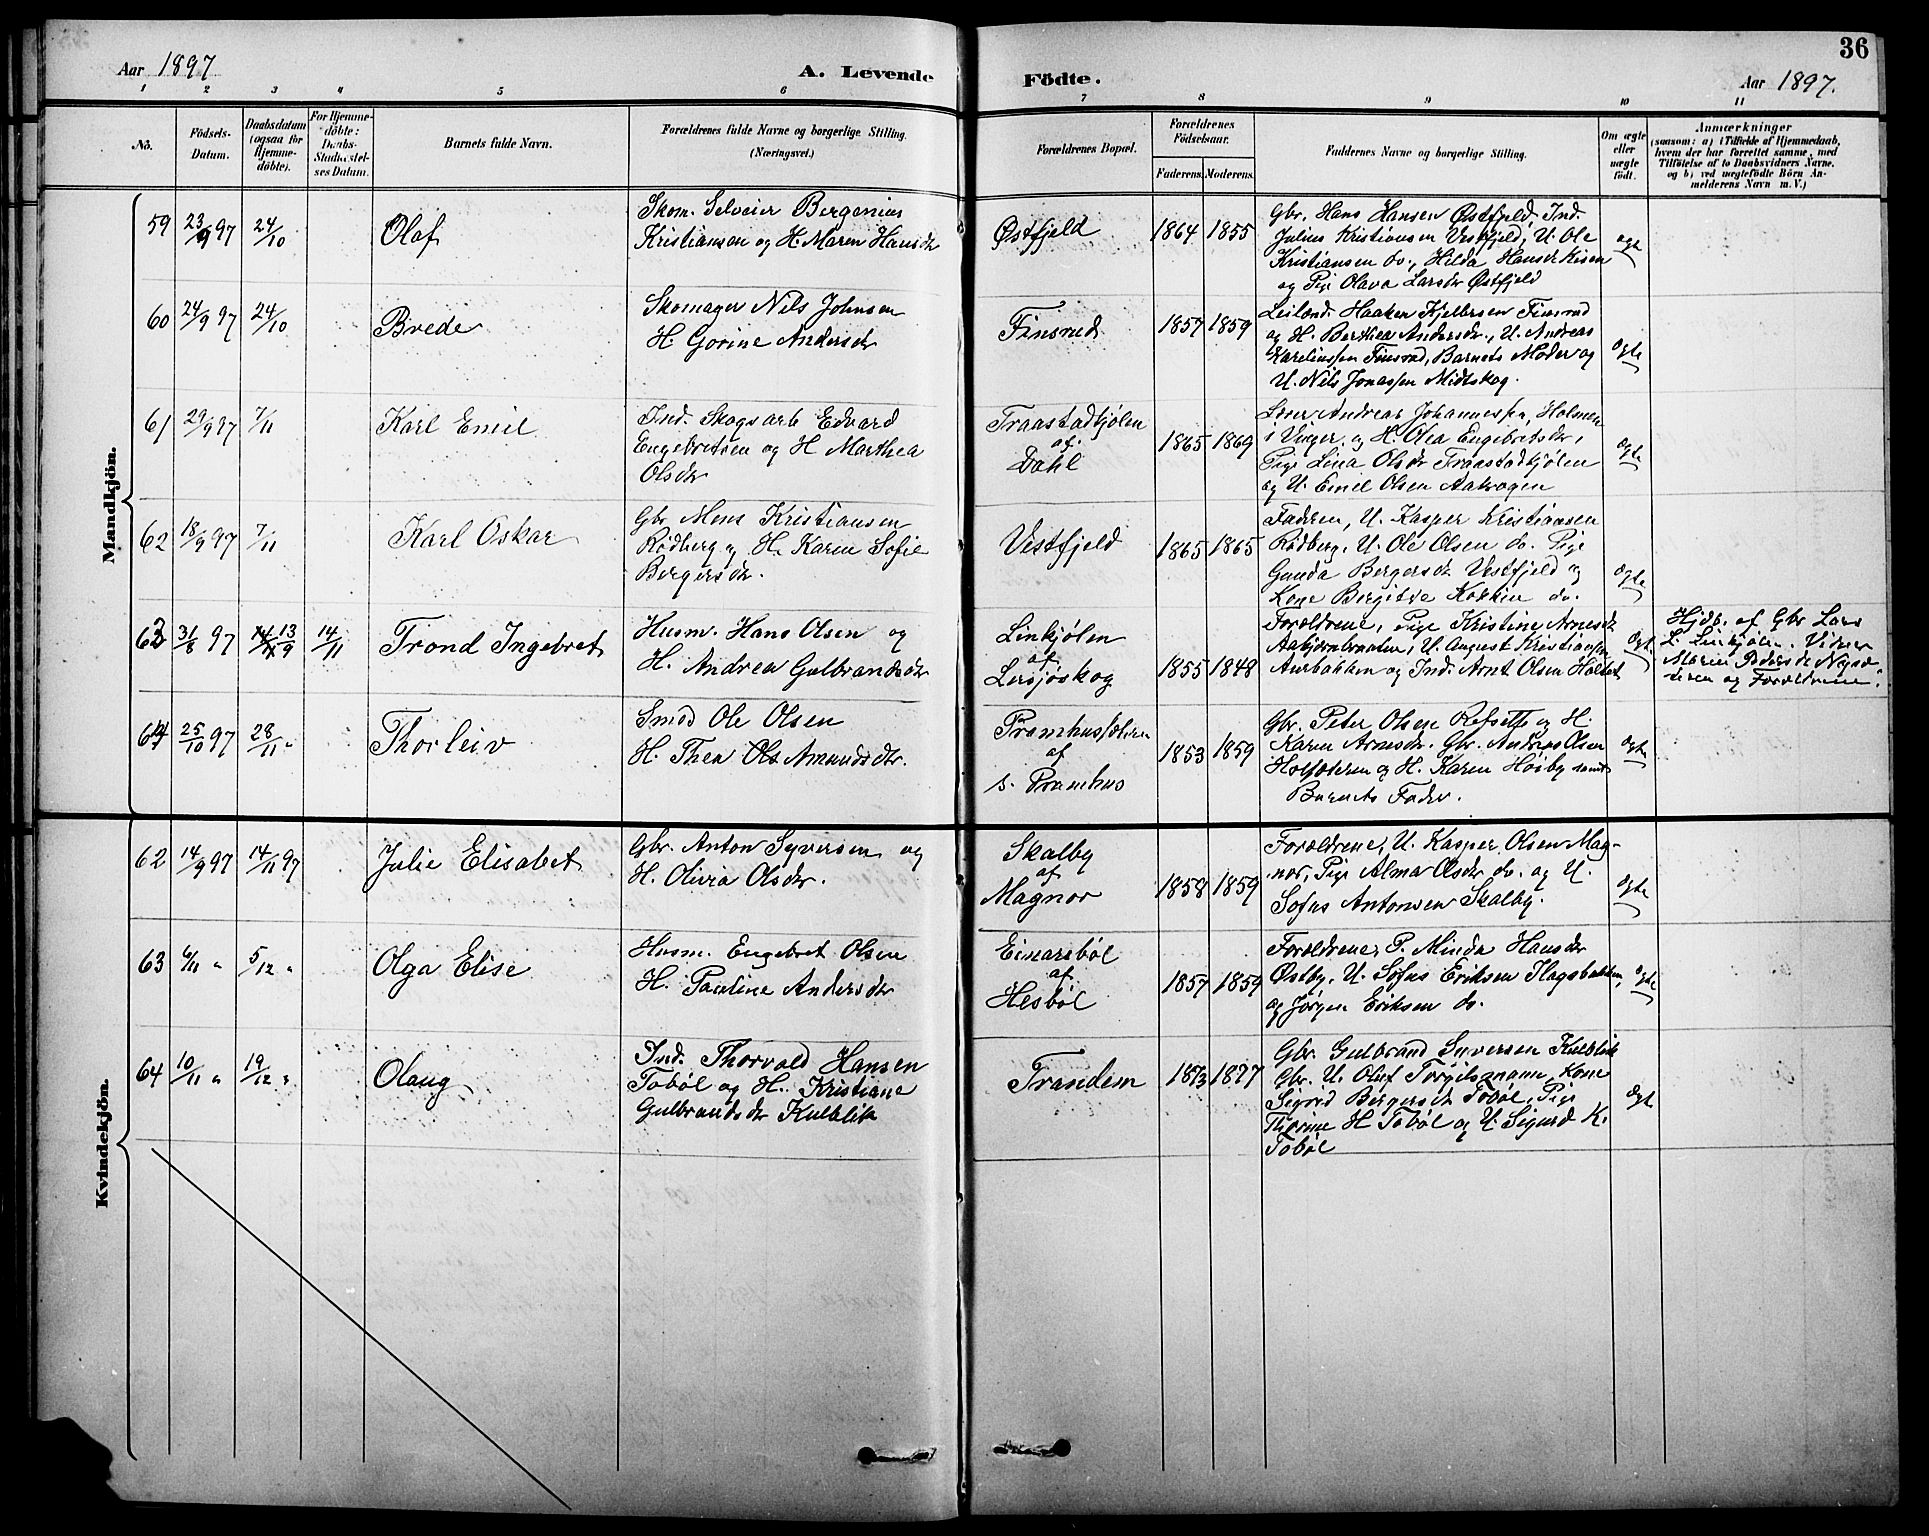 36
Aar 1897
A. Levende
Födte.
Aar 1897.
1 2 3 4 5 6 7 8 9 10 11
No.
Födsels-
Datum.
Daabsdatum
(ogsaa for
Hjemme-
döbte).
For Hjemme-
döbte:
Daabs-
Stadfæstel-
ses Datum.
Barnets fulde Navn.
Forældrenes fulde Navne og borgerlige Stilling.
(Næringsvei.)
Forældrenes Bopæl.
Forældrenes
Födselsaar.
Faderens.
Moderens.
Faddernes Navne og borgerlige Stilling.
Om ægte
eller
uægte
födt.
Anmærkninger
(saasom: a) i Tilfælde af Hjemmedaab,
hvem der har forrettet samme, med
Tilföielse af to Daabsvidners Navne,
og b) ved uægtefödte Börn An-
melderens Navn m. V.)
Mandkjön.
59 23/9 97 24/10 Olaf
Skom. Selveier Bergenius
Kristiansen og H. Maren Hansdr
Østfjeld 1864 1855
Gbr. Hans Hansen Østfjeld, Ind.
Julius Kristiansen Vestfjeld, U. Ole
Kristiansen do., Hilda Hansdr
og Pige Olava Larsdr Østfjeld
ægte
60 24/9 97 24/10 Brede
Skomager Nils Johnsen
H. Gorine Andersdr
Finsrud 1857 1859
Leilænd. Haaken Kjelbersen Finsrud
og H. Berthea Andersdr., U. Andreas
Karelinssen Finsrud, Barnets Moder og
U. Nils Jonassen Midtskog.
ægte
61 29/9 97 7/11 Karl Emil
Ind. Skogsarb Edvard
Engebretsen og H Marthea
Olsdr
Traastadkjølen
af
Dahl
1865 1869
Andreas Johannessen, Holmen
i Vinger og H. Olea Engebretsdr,
Pige Lina Olsdr Traastadkjølen
og U. Emil Olsen Aakrogen
ægte
62 18/9 97 7/11 Karl Oskar
Gbr. Mons Kristiansen
Rødberg og H. Karen Sofie
Bergersdr.
Vestfjeld 1865 1865
Faderen, U. Kasper Kristiansen
Rødberg, U. Ole Olsen do. Pige
Gunda Bergersdr Vestfjeld og
Kone Bergitte do.
ægte
63 31/8 97 13/9 14/11 Trond Ingebret
Husm. Hans Olsen og
H. Andrea Gulbrandsdr
Linkjølen
af
Lersjøskog
1855 1848
Forældrene, Pige Kristine Arnesdr
U. August Kristiansen
Aurbakken og Ind. Arnt Olsen
ægte
Hjdb. af Gbr Lars
L. Linkjølen. Vidner
Maren Pedersdr
og Forældrene.
64 25/10 97 28/11 " Thorleiv
Smed Ole Olsen
H. Thea Ols Amundsdr.
af
s. Pramhus
1853 1859
Gbr. Peter Olsen og H.
Karen Arnesdr. Gbr. Andreas Olsen
Holsæteren og H. Karen Høiby samt
Barnets Fader.
ægte
Kvindekjön.
62 14/9 97 14/11 97 Julie Elisabet
Gbr. Anton Syversen og
H. Olivia Olsdr.
Skalby
af
Magnor
1858 1859
Forældrene, U. Kasper Olsen Mag-
nor, Pige Alma Olsdr do. og U.
Sofus Antonsen Skalby.
ægte
63 6/11 " 5/12 " Olga Elise
Husm. Engebret Olsen
H. Pauline Andersdr
Einarsbøl
af
Hesbøl
1857 1859
Forældrene, P. Minda Hansdr
Østby, U. Sofus Eriksen Flagsbakken,
og Jørgen Eriksen do.
ægte
64 10/11 " 19/12 " Olaug
Ind. Thorvald Hansen
Tobøl og H. Kristiane
Gulbrandsdr Kulblik
Trandem 1873 1877
Gbr. Gulbrand Syversen Kulblik
Gbr. U. Oluf Torgilsmann, Kone
Sigrid Bergersdr Tobøl, Pige
Thorine H Tobøl og U. Sigurd K.
Tobøl
ægt